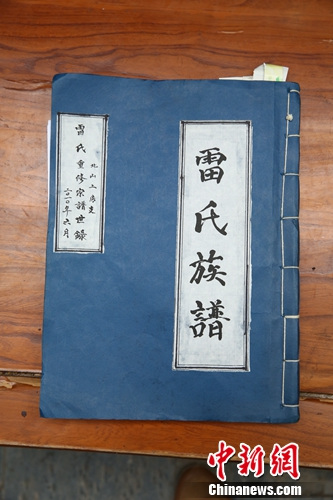 雷氏族譜
雷氏重修宗譜世錄
二〇一〇年六月
中新网
Chinanews.com